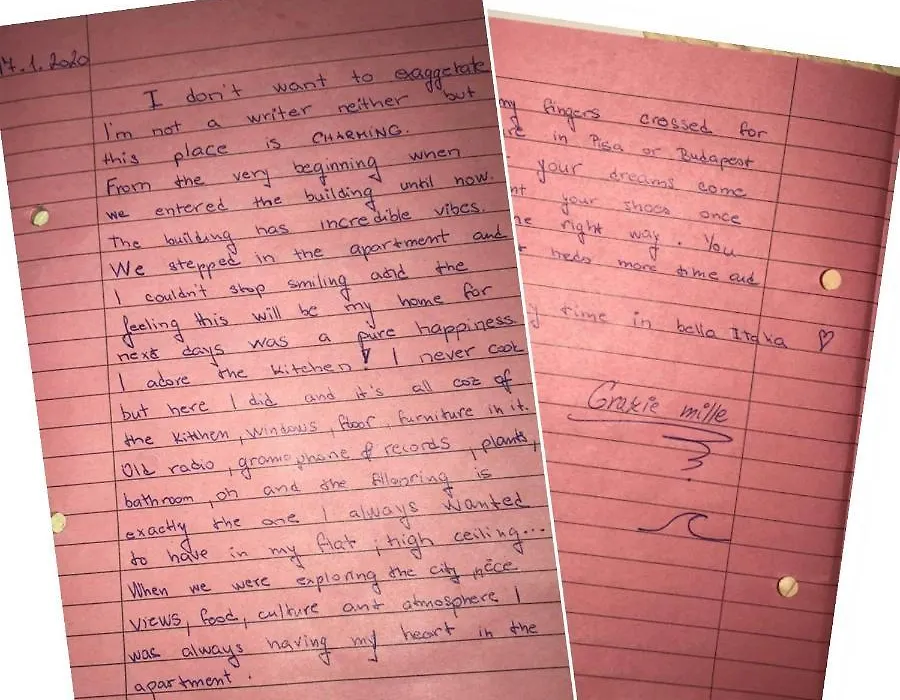 17.1.2020
I don't want to exaggerate
I'm not a writer neither but
this place is CHARMING.
From the very beginning when
we entered the building until now.
The building has incredible vibes.
We stepped in the apartment and
I couldn't stop smiling and the
feeling this will be my home for
next days was a pure happiness
I adore the kitchen! I never cook
but here I did and it's all coz of
the kitchen, windows, floor, furniture in it.
Old radio, gramophone & records, plants,
bathroom, oh and the flooring is
exactly the one I always wanted
to have in my flat, high ceiling...
When we were exploring the city, nice
views, food, culture and atmosphere I
was always having my heart in the
apartment.
my fingers crossed for
in Pisa or Budapest
your dreams come
your shoes once
right way. You
needs more time and
time in bella Italia ♡
Grazie mille